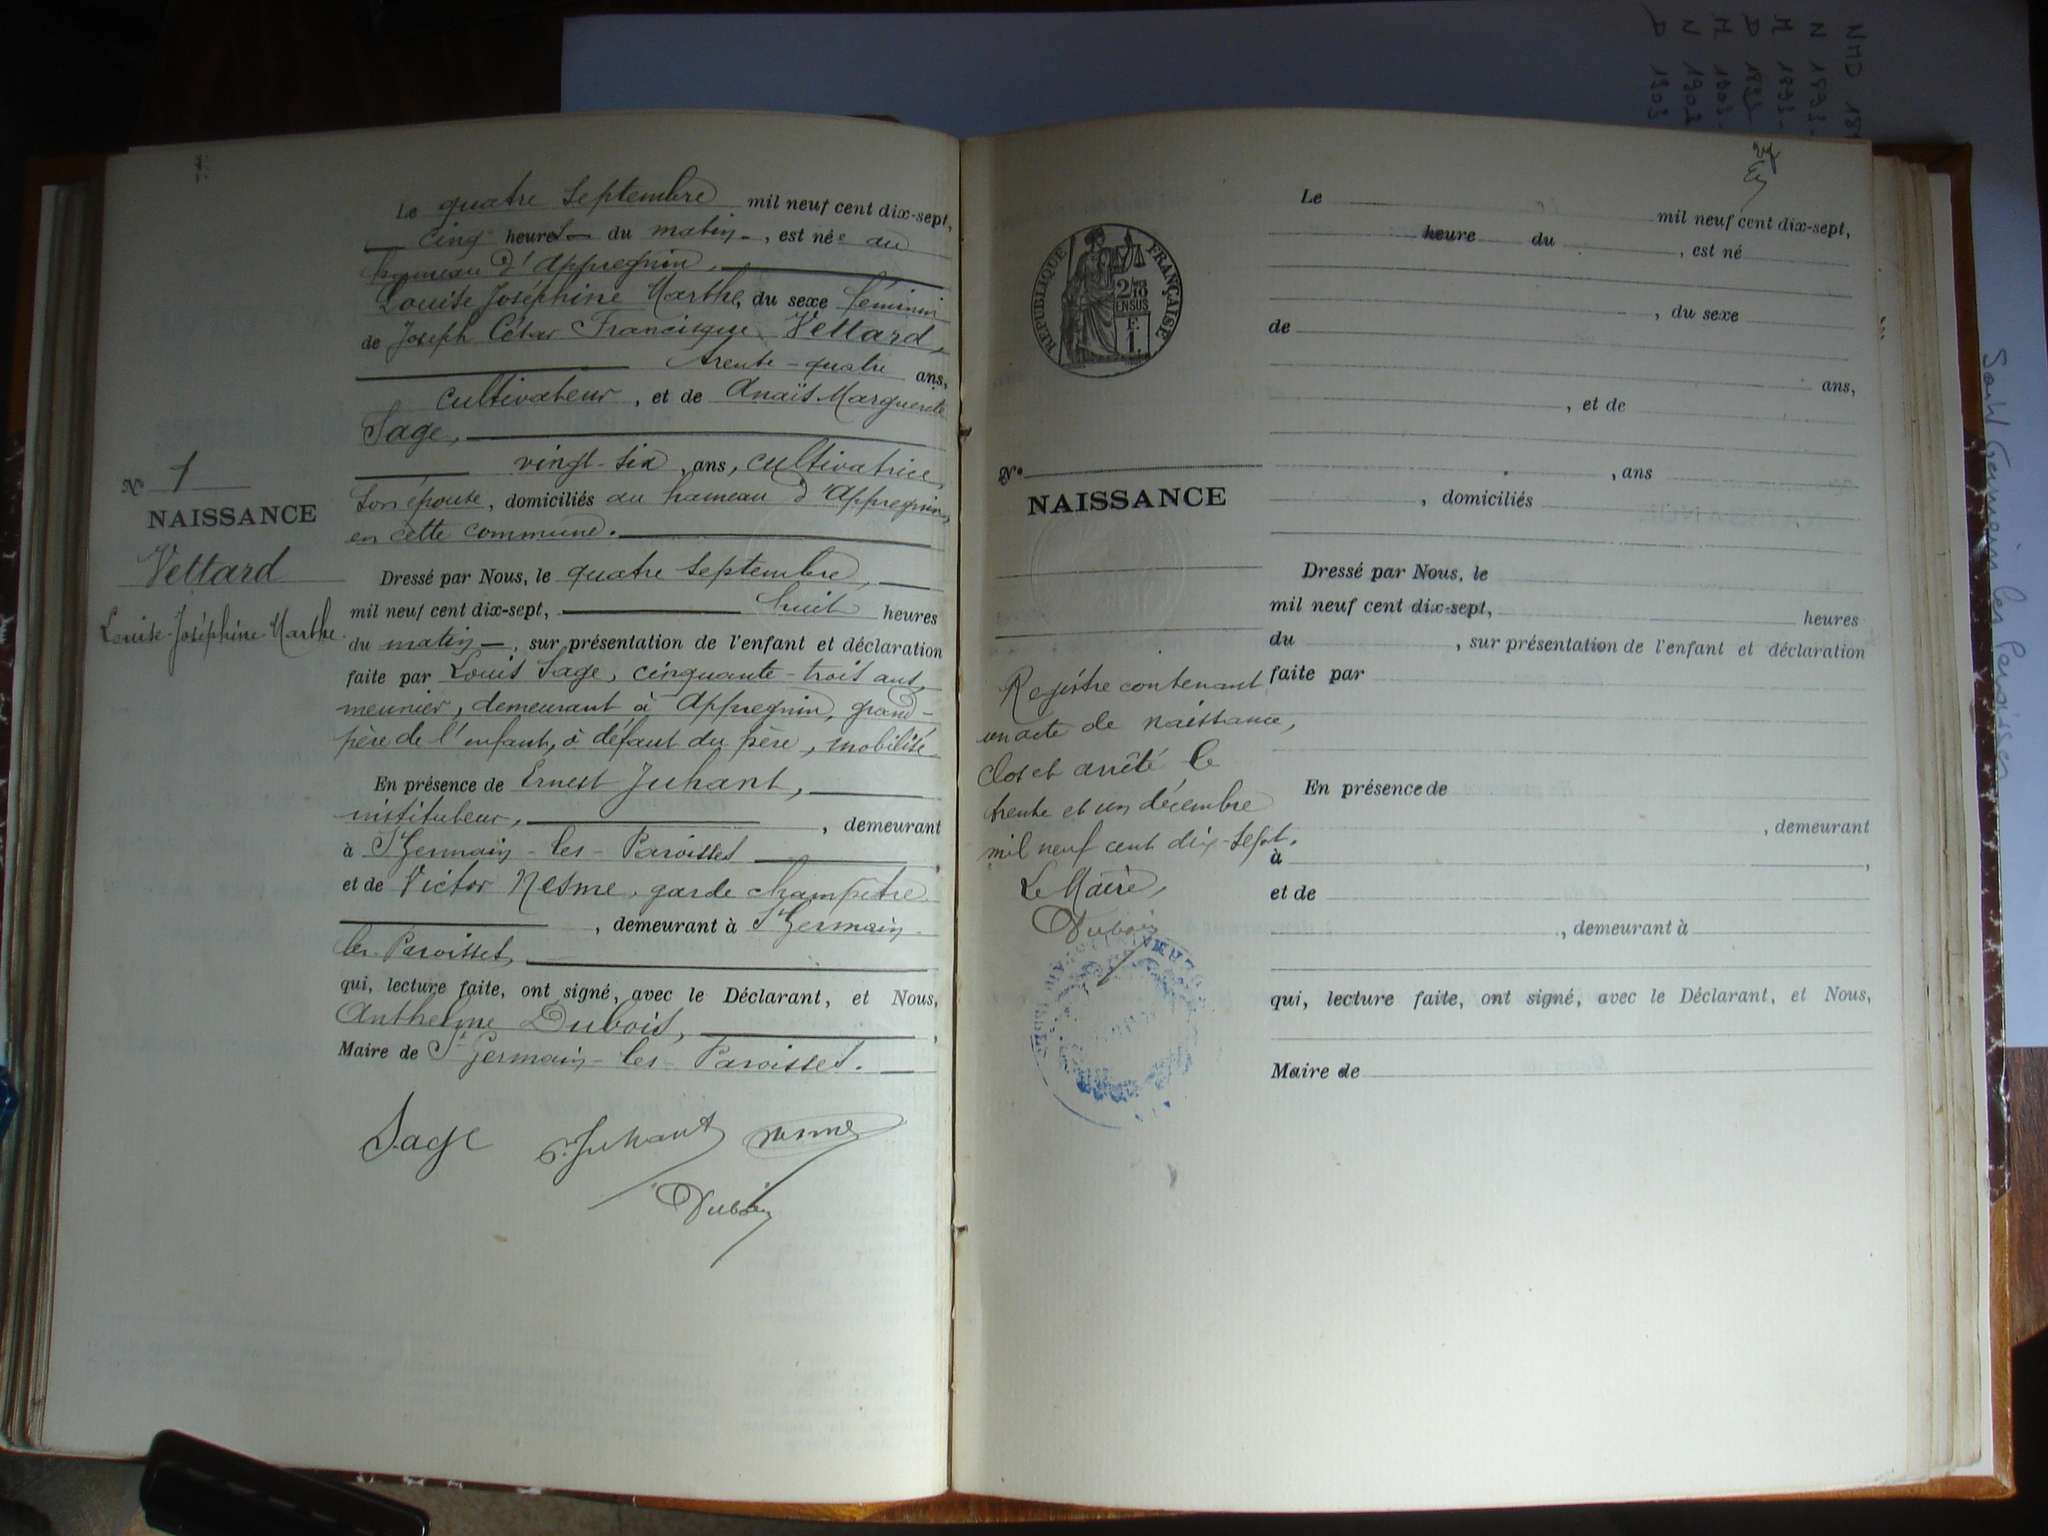 Le quatre Septembre mil neuf cent dix-sept,
cinq heures du matin, est née au
hameau d'Appregnin,
Louise Joséphine Marthe, du sexe féminin
de Joseph César Francisque Vettard,
trente-quatre ans,
cultivateur, et de Anaïs Marguerite
Sage,
vingt-six, ans, cultivatrice,
son épouse, domiciliés au hameau d'Appregnin,
en cette commune.
N° 1
NAISSANCE
Vettard
Louise Joséphine Marthe
Dressé par Nous, le quatre septembre,
mil neuf cent dix-sept, huit heures
du matin, sur présentation de l'enfant et déclaration
faite par Louis Sage, cinquante-trois ans,
meunier, demeurant à Appregnin, grand-
père de l'enfant, à défaut du père, mobilisé
En présence de Ernest Juhant,
instituteur, , demeurant
à St Germain-les-Paroisses
et de Victor Nesme, garde champêtre
, demeurant à St Germain-
les-Paroisses,
qui, lecture faite, ont signé, avec le Déclarant, et Nous,
Anthelme Dubois,
Maire de St Germain-les-Paroisses.
Sage E. Juhant Nesme
Dubois
RÉPUBLIQUE FRANÇAISE
Le mil neuf cent dix-sept,
heure du , est né
, du sexe
de
ans,
, et de
, ans
, domiciliés
N°
NAISSANCE
Dressé par Nous, le
mil neuf cent dix-sept, heures
du , sur présentation de l'enfant et déclaration
faite par
En présence de
, demeurant
à
et de
, demeurant à
qui, lecture faite, ont signé, avec le Déclarant, et Nous,
Maire de
Registre contenant
un acte de naissance,
clos et arrêté le
trente et un décembre
mil neuf cent dix-sept.
Le Maire,
Dubois
Saint Germain les Paroisses
N 1893-
M 1893-
M 1903-
N 1903
D 1903